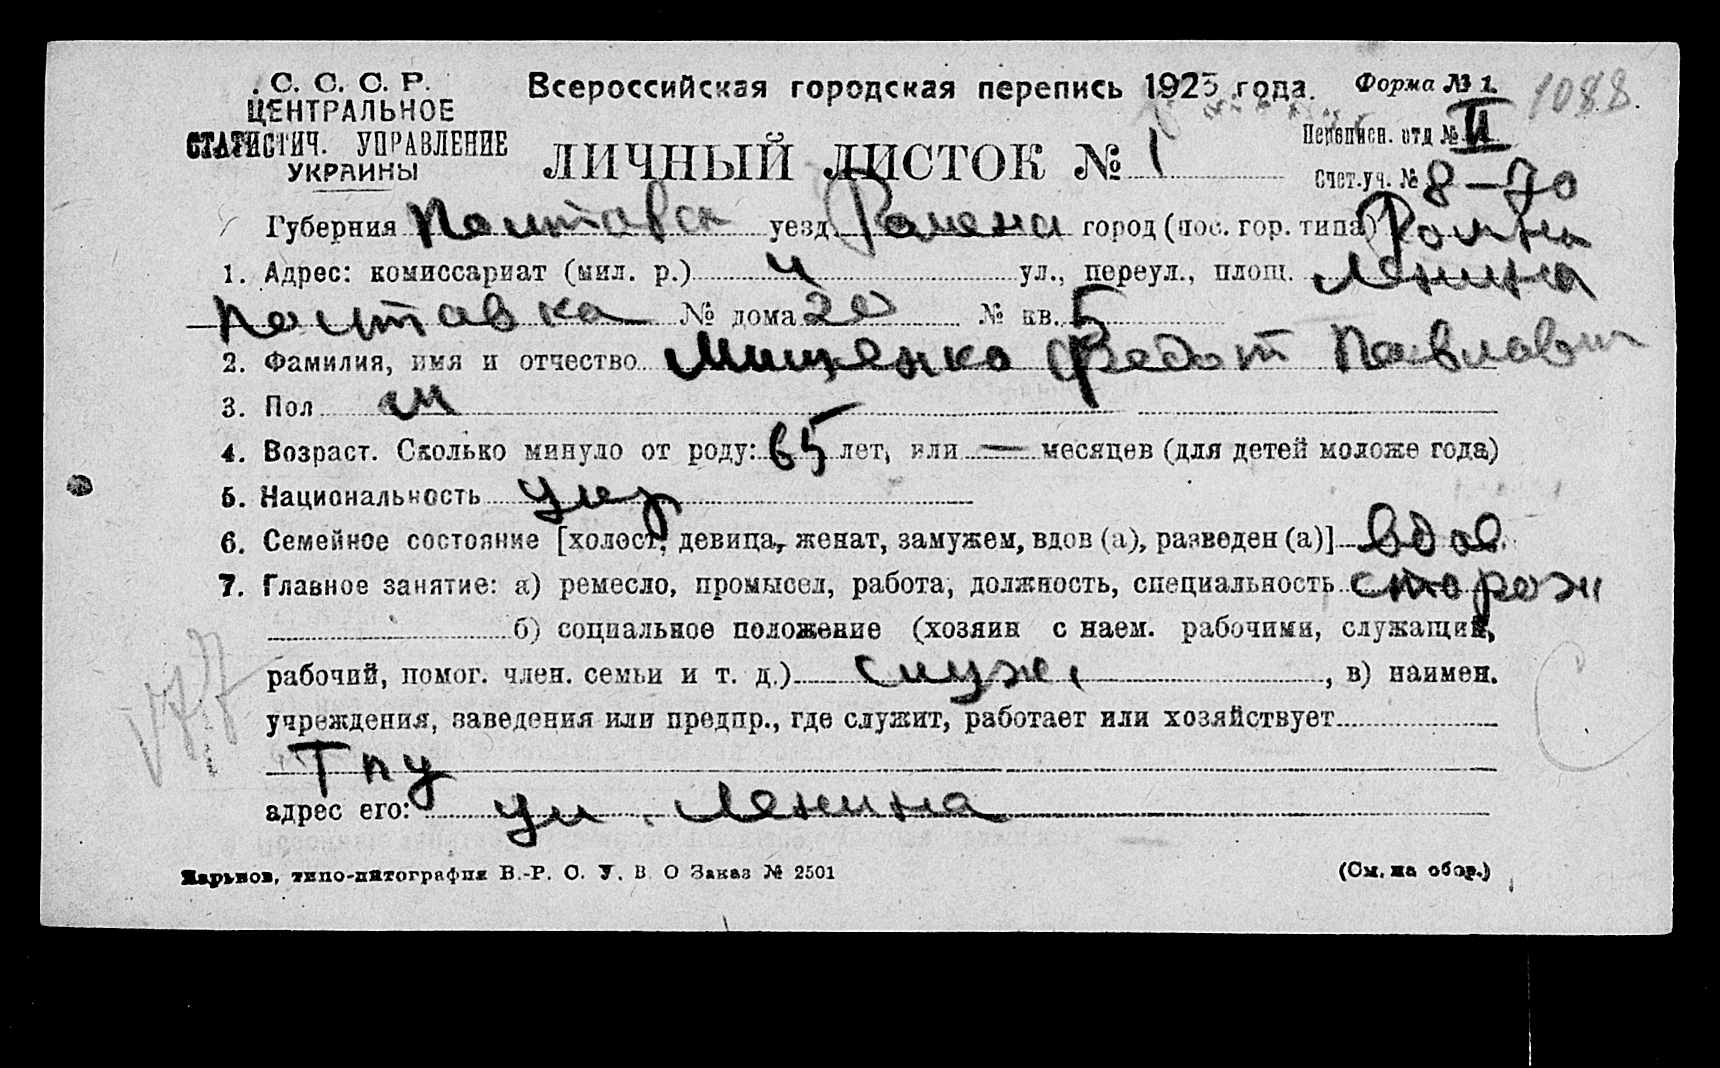 С. С. С. Р.
ЦЕНТРАЛЬНОЕ
СТАТИСТИЧ. УПРАВЛЕНИЕ
УКРАИНЫ
Всероссийская городская перепись 1923 года.
Форма № 1.
1088
ЛИЧНЫЙ ЛИСТОК № 1
Переписн. отд №
Счет.уч. № 8-70
Губерния Полтавск уезд Ромены город (пос. гор. типа) Ромны
1. Адрес: комиссариат (мил. р.) ул., переул., площ. Ленина
Полтавка № дома 20 № кв. 5
2. Фамилия, имя и отчество Мищенко Федот Павлович
3. Пол м
4. Возраст. Сколько минуло от роду: 65 лет, или — месяцев (для детей моложе года)
5. Национальность укр
6. Семейное состояние [холост, девица, женат, замужем, вдов (а), разведен (а)] вдов
7. Главное занятие: а) ремесло, промысел, работа, должность, специальность сторож
б) социальное положение (хозяин с наем. рабочими, служащий,
рабочий, помог. член. семьи и т. д.) служ, в) наимен.
учреждения, заведения или предпр., где служит, работает или хозяйствует
Тпу
адрес его: ул. Ленина
Харьков, типо-литография В.-Р. С. У. В О Заказ № 2501
(См. на обор.)